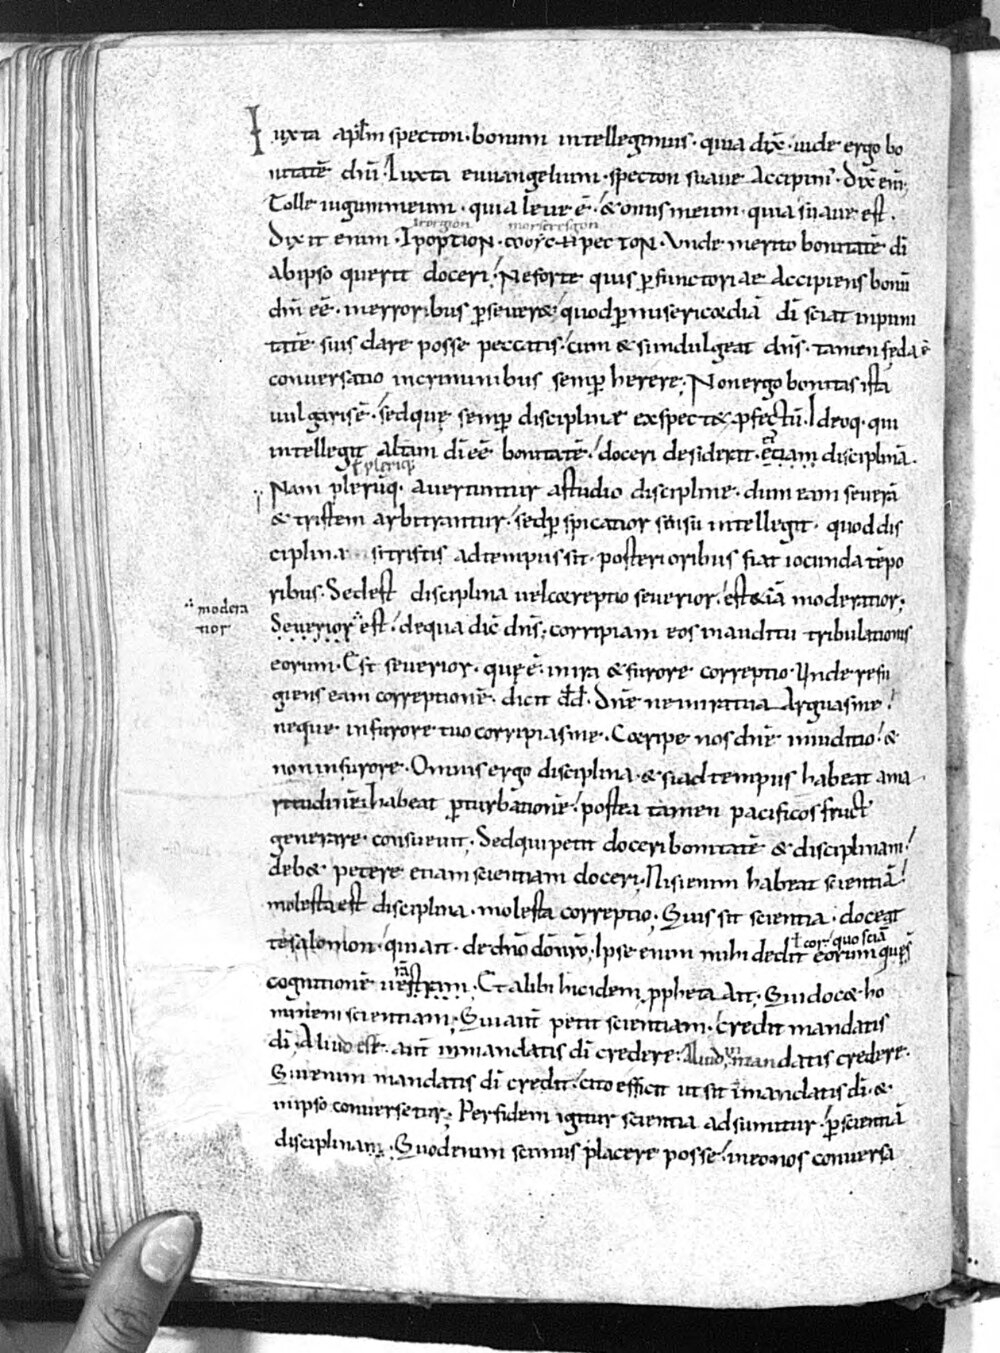 Iuxta aplm specton · bonum intellegimus · quia dix̄ · uide ergo bo
nitatē dnī · Iuxta euuangelium · specton suaue accipim̄ · Dix̄ eni̅ ;
Tolle iugum meum · quia leue ē · & onus meum · quia suaue est ·
Icorgion morserescon
Dixit enim · ΙΡΟΡΤΙΟΝ · ΡΕCΤΟΝ · Unde merito bonitatē dī
ab ipso querit doceri · Ne forte quis pfunctoriae accipiens bonū
dnī eē · in erroribus pseuer& · quod p misericordiā dī sciat inpuni
tatē suis dare posse peccatis · cum & si indulgeat dn̄s · tamen feda ē
conuersatio in criminibus semp herere ; Non ergo bonitas ista
uulgaris ē · sed quę semp disciplinae exspect& pfectū · Ideoq · qui
intellegit altam dī eē bonitatē · doceri desiderat · etiam disciplinā ·
ł pleriq;
Nam plerūq · auertuntur a studio discipline · dum eam seuerā
& tristem arbitrantur · sed pspicatior sensu intellegit · quod dis
ciplina si tristis ad tempus sit · posterioribus fiat iocunda tēpo
ribus · Sed est disciplina uel correptio seuerior · est & iā moderatior ;
modera
tior
Seuerior est · de qua dic̄ dn̄s ; corripiam eos in auditu tribulationis
eorum · Est seuerior · quę ē in ira & furore correptio · Unde refu
giens eam correptionē · dicit dd̄ · Dnē ne in ira tua arguas me ·
neque in furore tuo corripias me · Corripe nos dnē in iuditio · &
non in furore · Omnis ergo disciplina · & si ad tempus habeat ama
ritudinē habeat pturbationē · postea tamen pacificos fruct
generare consueuit · Sed qui petit doceri bonitatē & disciplinam ·
deb& petere etiam scientiam doceri · Nisi enim habeat scientiā ·
molesta est disciplina · molesta correptio ; Quis sit scientia · doceat
ł cor · quo sciā
te salomon · qui ait · de dnō dōnro ; Ipse enim mihi dedit eorum quę s
rā
cognitionē uestram · Et alibi hic idem ppheta ait · Qui doc& ho
minem scientiam ; Qui aut̄ petit scientiam · credit mandatis
dī ; Aliud est · aut̄ in mandatis dī credere · Aliud · mandatis credere ·
Qui enim mandatis dī credit · cito efficit ut sit ī mandatis dī · &
in ipso conuersetur ; Per fidem igitur scientia adsumitur · p scientiā
disciplinam ; Quod enim scimus placere posse · in eo nos conuersa